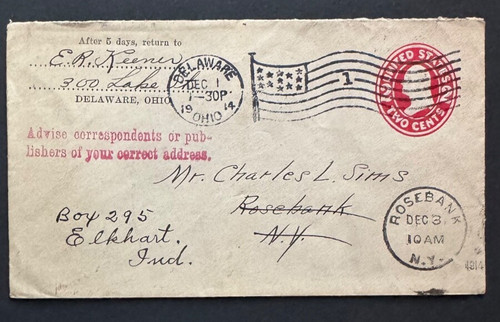 After 5 days, return to
E.R. Keener
300 Lake St.
DELAWARE, OHIO
DELAWARE
DEC 1
1-30P
1914
OHIO
1
UNITED STATES
TWO CENTS
Advise correspondents or pub-
lishers of your correct address.
Mr. Charles L. Sims
Rosebank
N.Y.
Box 295
Elkhart.
Ind.
ROSEBANK
DEC 3
10AM
N.Y.
1914